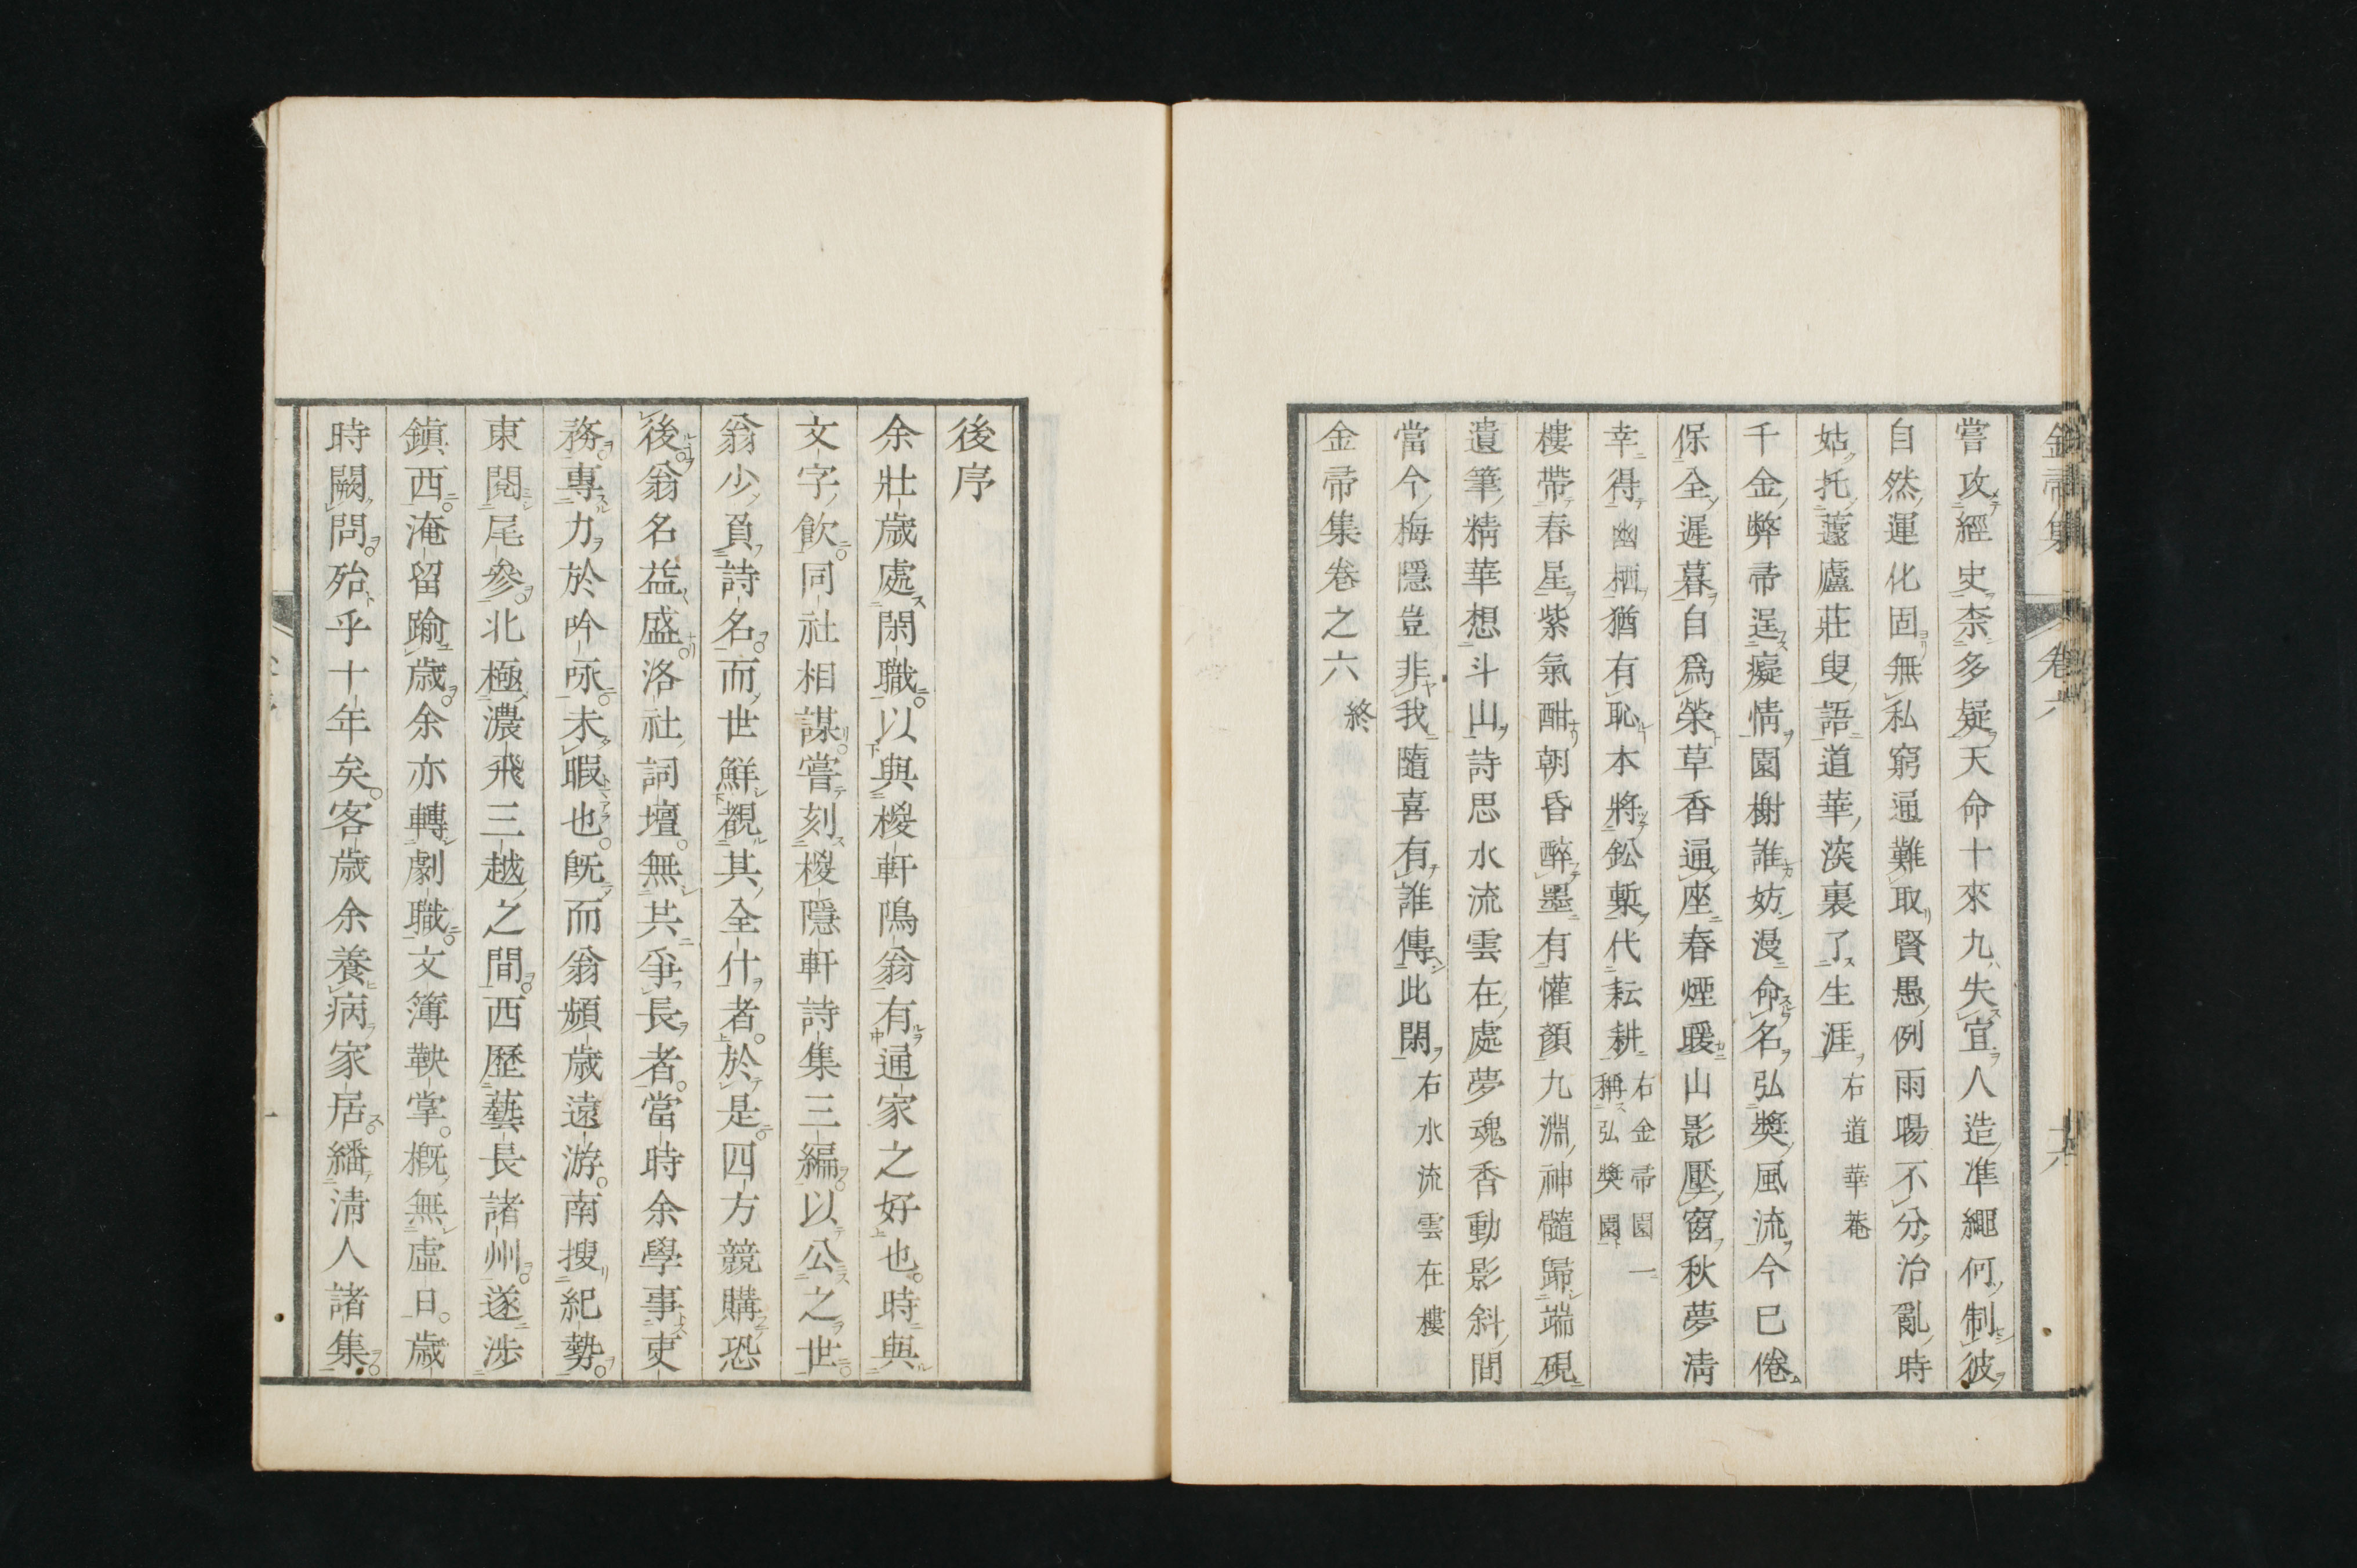 金帚集 卷六 十六
嘗攻經史柰多疑天命十來九失宜人造準繩何制彼
自然運化固無私窮通難取賢愚例雨暘不分治亂時
姑托蘧廬莊叟語道華深裏了生涯右道華菴
千金弊帚逞癡情園榭誰妨漫命名弘奬風流今已倦
保全遲暮自爲榮草香通座春煙暖山影壓窗秋夢淸
幸得幽栖猶有恥本將鈆槧代耘耕右金帚園一稱弘奬園
樓帶春星紫氣酣朝昏醉墨有懽顏九淵神髓歸端硯
遺筆精華想斗山詩思水流雲在處夢魂香動影斜間
當今梅隱豈非我隨喜有誰傳此閑右水流雲在樓
金帚集卷之六 終
後序
余壯歲處閑職以與椶軒鳴翁有通家之好也時與
文字飲同社相謀嘗刻椶隱軒詩集三編以公之世
翁少負詩名而世鮮覩其全什者於是四方競購恐
後翁名益盛洛社詞壇無共爭長者當時余學事吏
務專力於吟咏未暇也旣而翁頻歲遠游南搜紀勢
東閱尾參北極濃飛三越之間西歷藝長諸州遂涉
鎭西淹留踰歲余亦轉劇職文簿鞅掌槪無虛日歲
時闕問殆乎十年矣客歲余養病家居繙淸人諸集